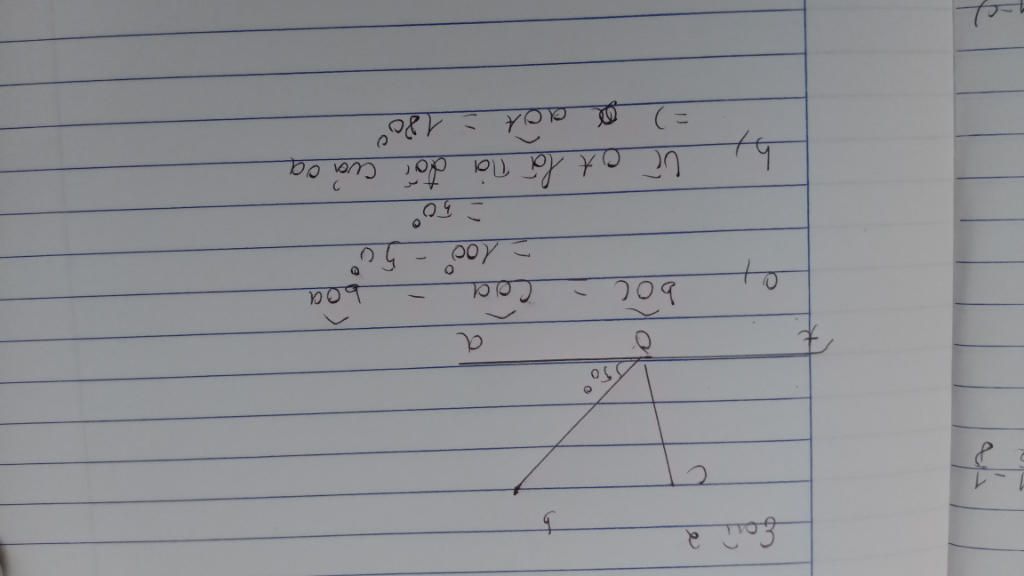 Bài 2
b
C
50°
t O a
a, bOC = COa - bOa
= 100° - 50°
= 50°
b, Vì Ot là tia đối của Oa
=> aOt = 180°